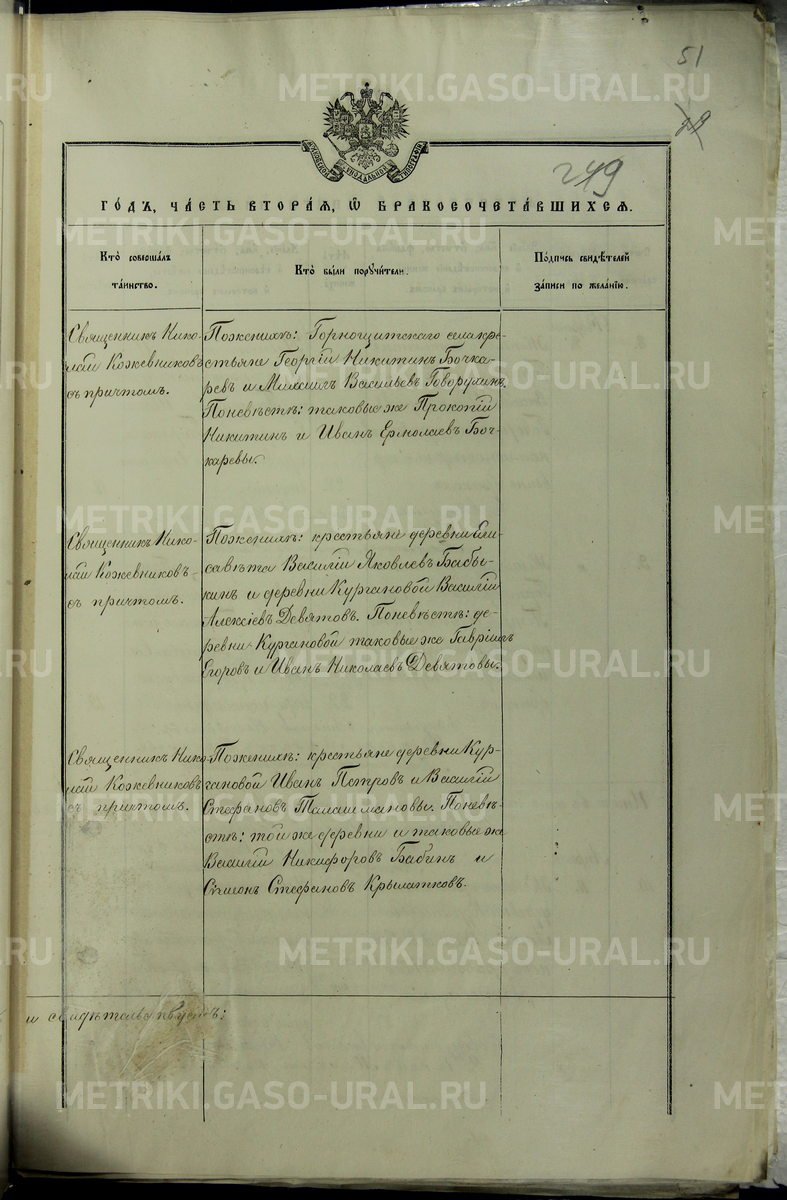 51
249
МОСКОВСКОЙ СѴНОДАЛЬНОЙ ТИПОГРАФІИ
ГО́ДЪ, ЧА́СТЬ ВТОРА́Я, Ѡ БРАКОСОЧЕТА́ВШИХСЯ.
Кто̀ соверша́лъ
та́инство.
Кто̀ бы́ли порꙋчи́тели.
По́дпись свидѣ́телей
за́писи по жела́нію.
Священникъ Нико-
лай Кожевниковъ
съ причтомъ.
По женихѣ: Горнощитскаго села кре-
стьяне Георгій Никитинъ Бочка-
ревъ и Михаилъ Васильевъ Говорухинъ.
По невѣстѣ: таковые же Прокопій
Никитинъ и Иванъ Ермолаевъ Боч-
каревы.
Священникъ Нико-
лай Кожевниковъ
съ причтомъ.
По женихѣ: крестьяне деревни Ели-
савѣта Василій Яковлевъ Бабы-
кинъ и деревни Кургановой Василій
Алексіевъ Девятовъ. По невѣстѣ: де-
ревни Кургановой таковые же Гавріилъ
Егоровъ и Иванъ Николаевъ Девятовы.
Священникъ Нико-
лай Кожевниковъ
съ причтомъ.
По женихѣ: крестьяне деревни Кур-
гановой Иванъ Петровъ и Василій
Стефановъ Талашмановы. По невѣ-
стѣ: той же деревни и таковые же
Василій Никифоровъ Бабинъ и
Сѵмеонъ Стефановъ Крылатковъ.
и свидѣтельствуемъ:
METRIKI.GASO-URAL.RU